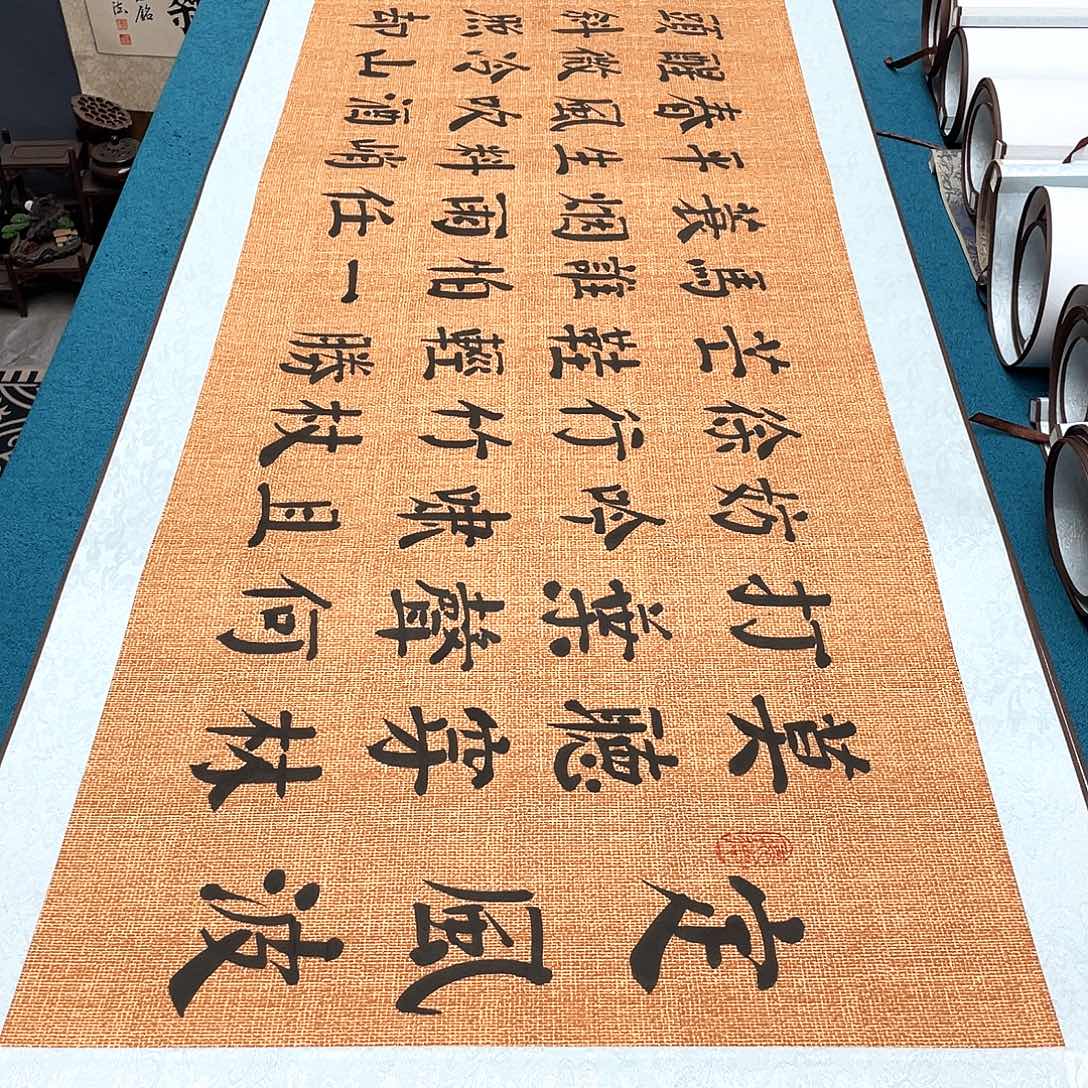 定風波
莫聽穿林
打葉聲何
妨吟嘯且
徐行竹杖
芒鞋輕勝
馬誰怕一
蓑烟雨任
平生料峭
春風吹酒
醒微冷山
頭斜照却
銘